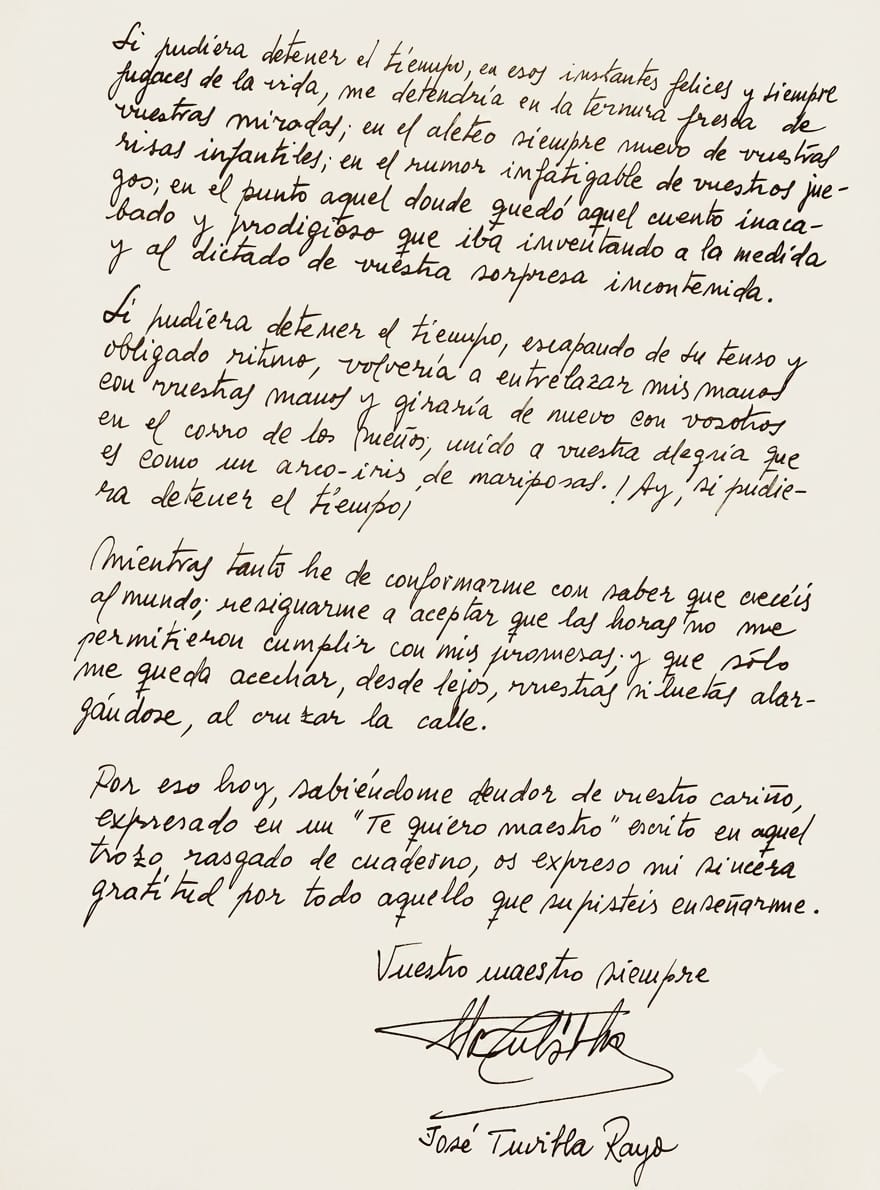 Si pudiera detener el tiempo, en esos instantes felices y siempre
fugaces de la vida, me detendría en la ternura fresca de
vuestras miradas; en el aleteo siempre nuevo de vuestras
risas infantiles; en el rumor infatigable de vuestros jue-
gos; en el punto aquel donde quedó aquel cuento inaca-
bado y prodigioso que iba inventando a la medida
y al dictado de vuestra sorpresa incontenida.
Si pudiera detener el tiempo, escapando de su tenso y
obligado ritmo, volvería a entrelazar mis manos
con vuestras manos y giraría de nuevo con vosotros
en el corro de los sueños, unido a vuestra alegría que
es como un arco-iris de mariposas. ¡Ay, si pudie-
ra detener el tiempo!
Mientras tanto he de conformarme con saber que crecéis
al mundo; resignarme a aceptar que las horas no me
permitieron cumplir con mis promesas; y que sólo
me queda acechar, desde lejos, vuestras siluetas alar-
gándose, al cruzar la calle.
Por eso hoy, sabiéndome deudor de vuestro cariño,
expresado en un "Te quiero maestro" escrito en aquel
trozo rasgado de cuaderno, os expreso mi sincera
gratitud por todo aquello que supisteis enseñarme.
Vuestro maestro siempre
José Tuvilla Rayo